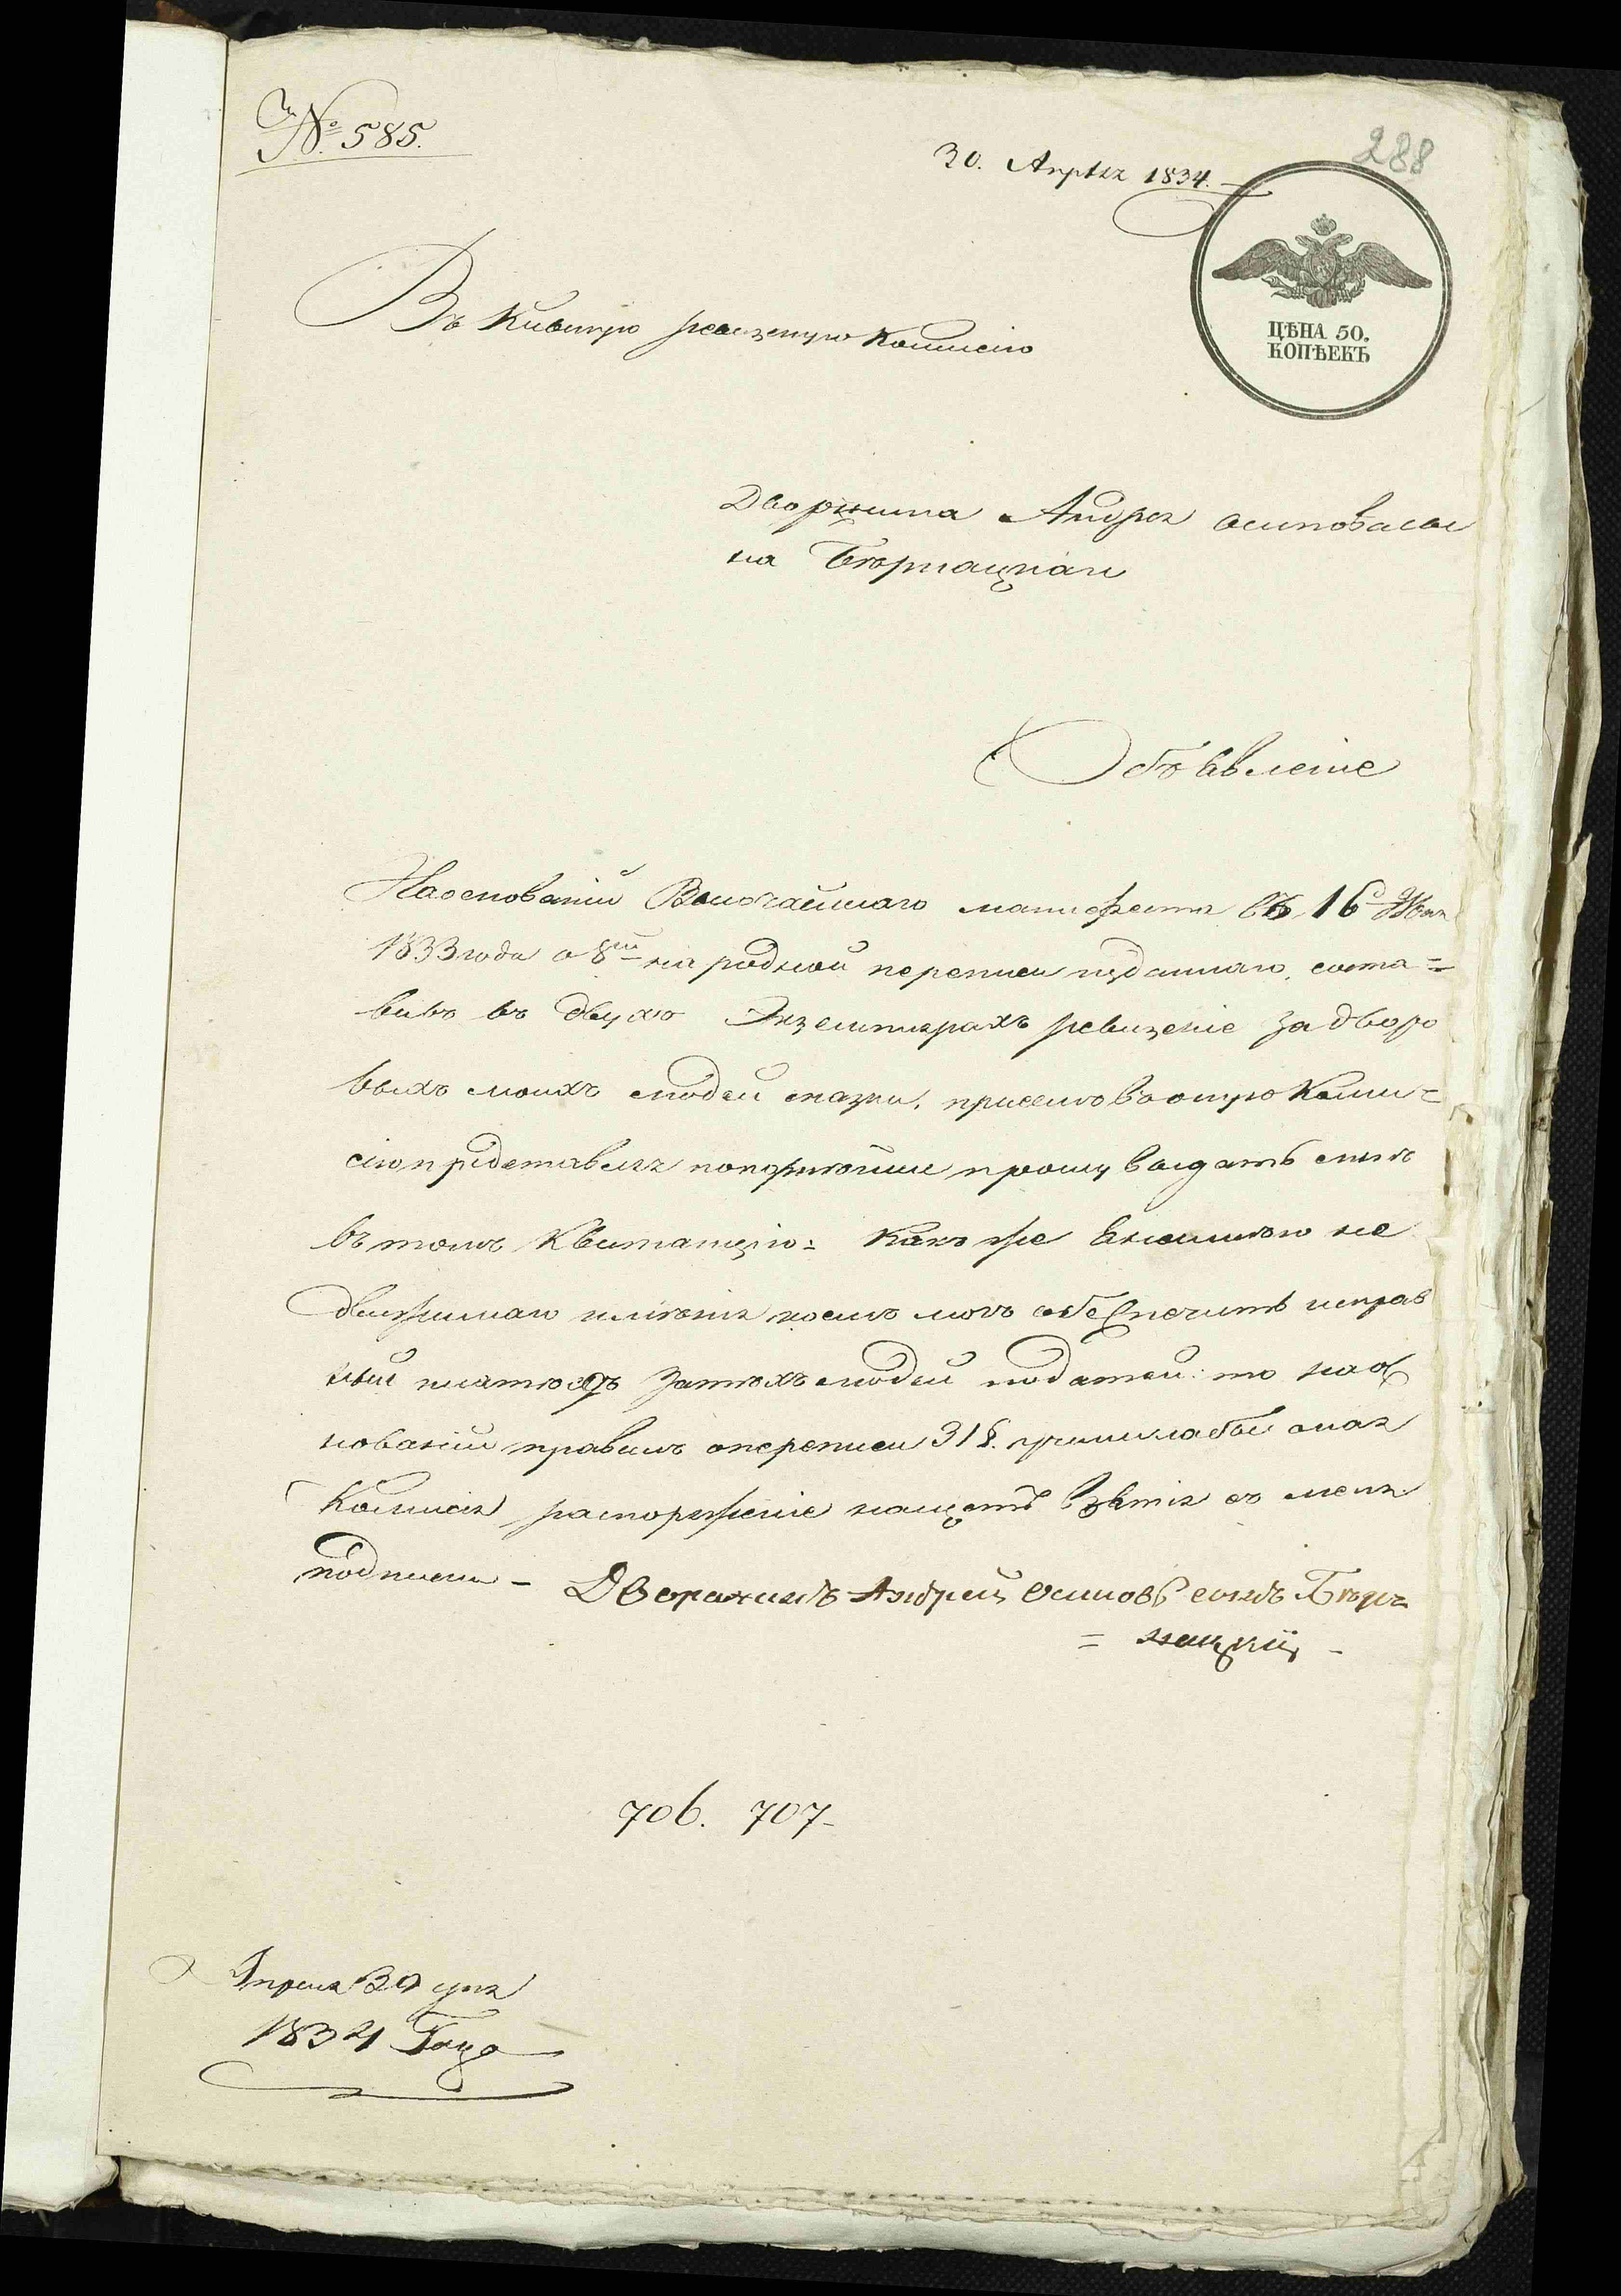 № 585.
30. Апрѣля 1834.
288
ЦѢНА 50.
КОПѢЕКЪ
Въ Киевскую ревизскую Коммисію
Дворянина Андрея Осипова сы
на Бѣрнацкаги
Объявленіе
На основаніи Высочайшаго манифеста въ 16 д. Іюня
1833 года о 8й народной переписи изданнаго, соста=
вивъ въ двухъ Экземплярахъ ревизскіе за дворо
выхъ моихъ людей сказки, при семъ во оную Комми=
сію прѣдставляя попорнѣйше прошу выдать мнѣ
въ томъ Квитанцію: Какъ же я неимѣю не
движимаго имѣнія коемъ могъ обеспечить исправ
ный платежъ за тѣхъ людей податей: то на ос
нованіи правилъ о переписи 31 §. учинила бы оная
Коммисія распоряженіе нащетъ взятія съ меня
подписки – Дворянинъ Андрей Осиповъ сынъ Бѣрн
= нацкій –
706. 707–
Апреля 30 дня
1834 Года